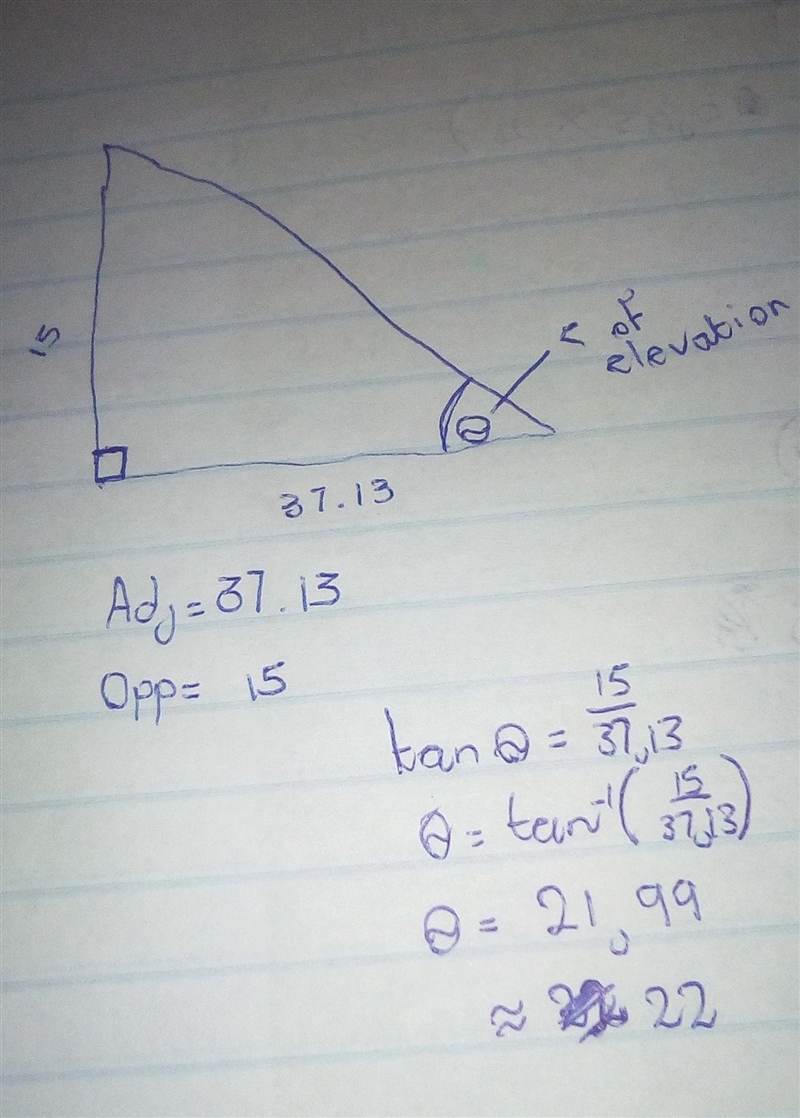 15
∠ of
elevation
θ
37.13
Adj = 37.13
Opp = 15
tan θ = 15/37,13
θ = tan⁻¹(15/37,13)
θ = 21,99
≈ 22